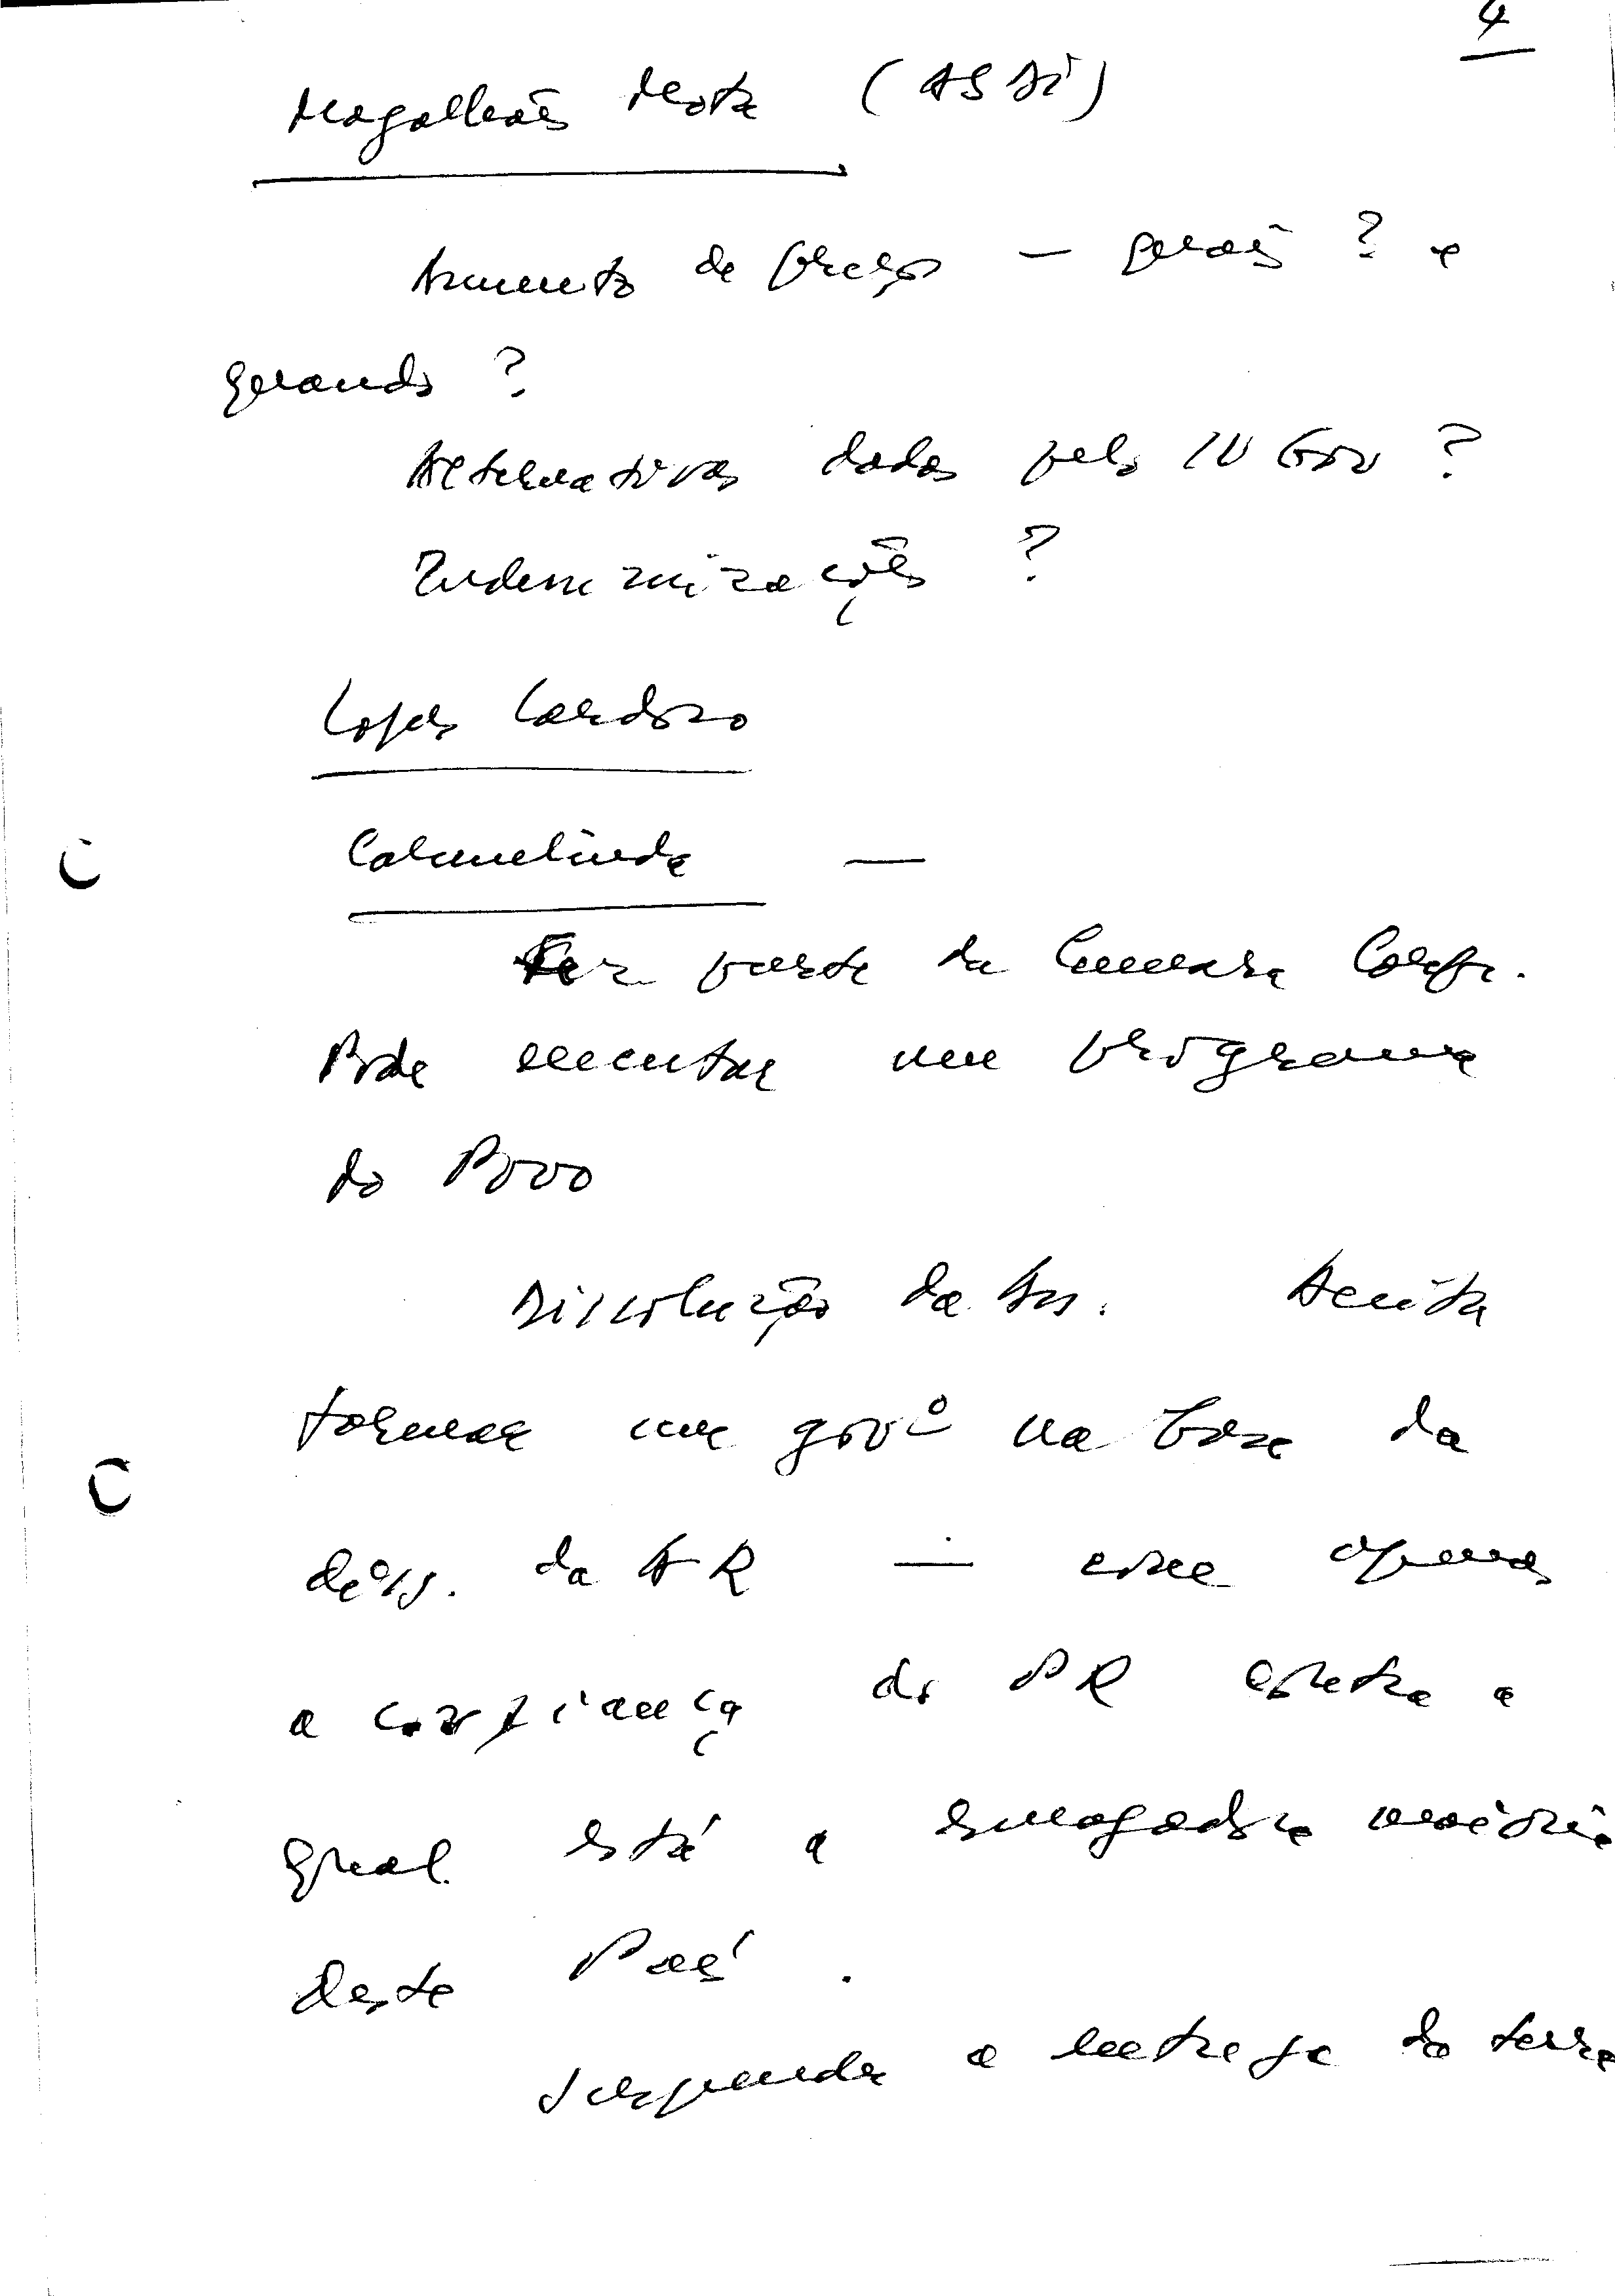 4
Magalhães Mota (ASDI)
Aumento de preços — gerais ? e
quando ?
Alternativas dadas pelo IV Gov ?
Indemnizações ?
Lopes Cardoso
Carmelinda —
Fez parte da Camara Corp.
Pode executar um programa
do Povo
Dissolução da Ass. Aceita
formar um govº na base da
diss. da AR — com apenas
a confiança do PR contra a
qual está a esmagadora maioria
deste País .
Suspenda a entrega da terra